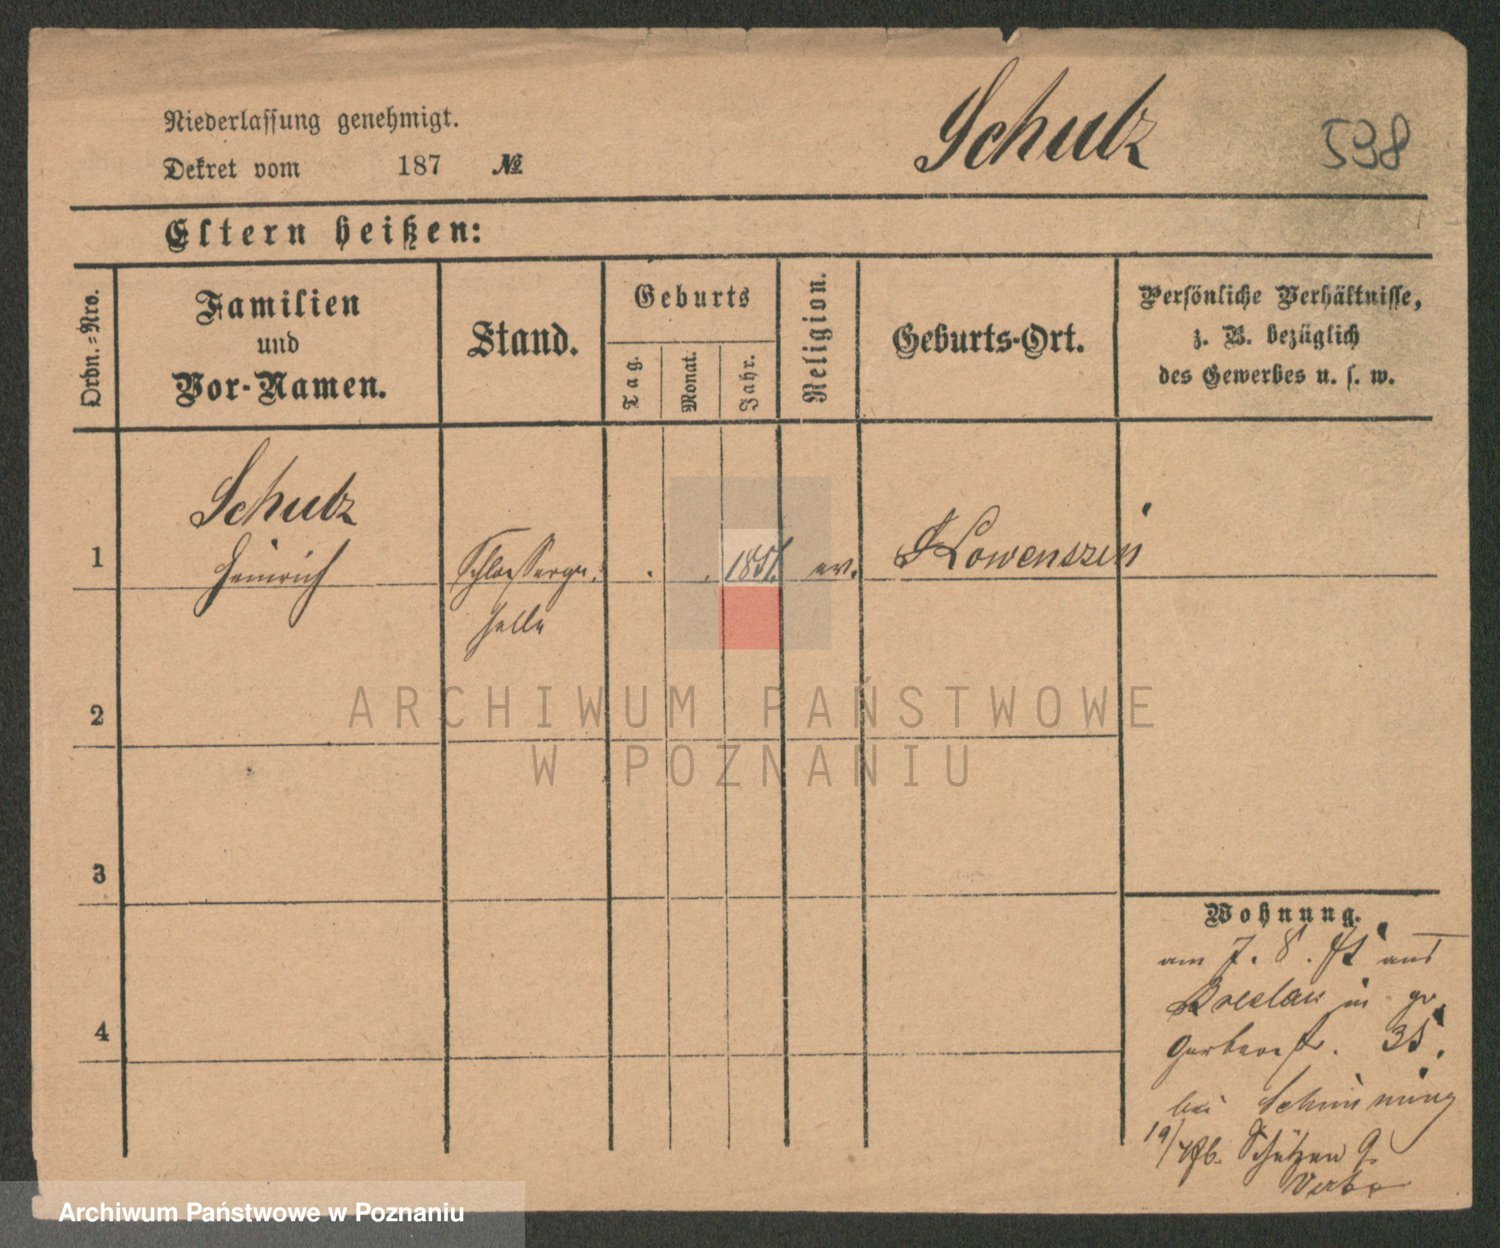 Niederlassung genehmigt.
Dekret vom 187 №
Schulz 598
Eltern heißen:
Ordn.=Nro.
Familien
und
Vor-Namen.
Stand.
Geburts
Tag.
Monat.
Jahr.
Religion.
Geburts-Ort.
Persönliche Verhältnisse,
z. B. bezüglich
des Gewerbes u. s. w.
1
Schulz
Heinrich
Schlosserge-
selle
1851. ev.
2
3
4
Wohnung.
am 7. 8. aus
Breslau in gr.
Gerberstr. 35.
bei
Schützen 9.
ARCHIWUM PAŃSTWOWE
W POZNANIU
Archiwum Państwowe w Poznaniu